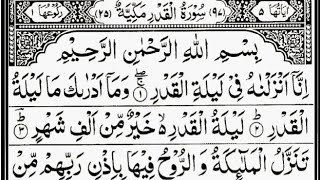 اٰيَاتُهَا ٥ (٩٧) سُوْرَةُ الْقَدْرِ مَكِّيَّةٌ (٢٥) رُكُوْعُهَا ١
بِسْمِ اللّٰهِ الرَّحْمٰنِ الرَّحِيْمِ
اِنَّاۤ اَنْزَلْنٰهُ فِيْ لَيْلَةِ الْقَدْرِ ۚ‏﴿۱﴾ وَمَاۤ اَدْرٰىكَ مَا لَيْلَةُ
الْقَدْرِ ؕ‏﴿۲﴾ لَيْلَةُ الْقَدْرِ ۙ خَيْرٌ مِّنْ اَلْفِ شَهْرٍ ؕ‏﴿۳﴾
تَنَزَّلُ الْمَلٰٓئِكَةُ وَ الرُّوْحُ فِيْهَا بِاِذْنِ رَبِّهِمْ مِّنْ